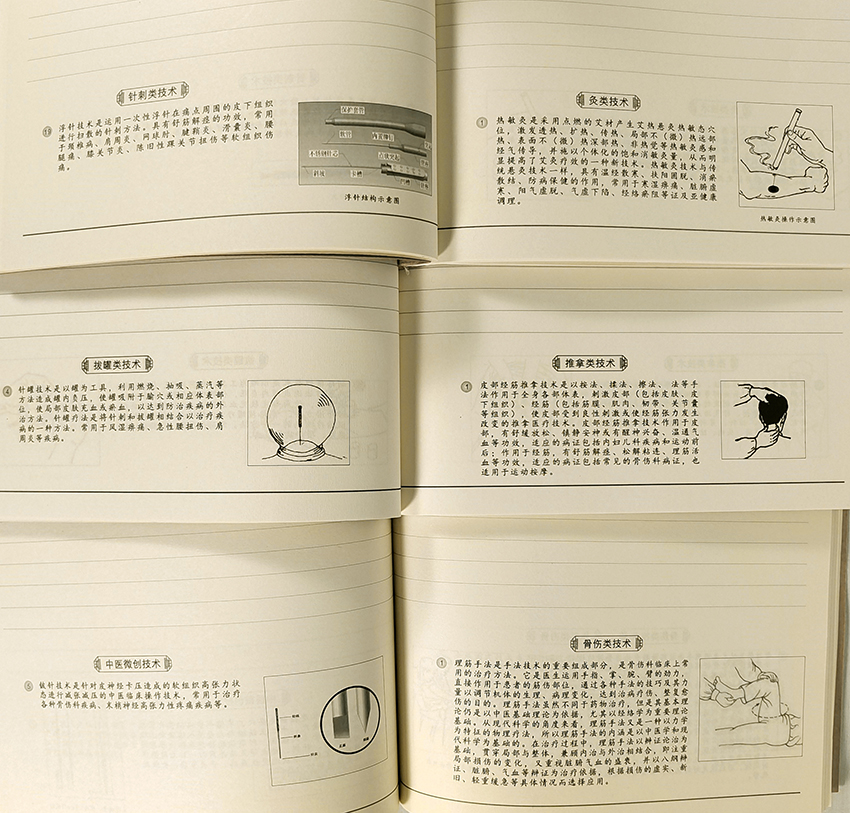 针刺类技术
⑪
浮针技术是运用一次性浮针在痛点周围的皮下组织
进行扫散的针刺方法。具有舒筋解痉的功效,常用
于颈椎病、肩周炎、网球肘、腱鞘炎、滑囊炎、腰
腿痛、膝关节炎、陈旧性踝关节扭伤等软组织伤
痛。
保护套管
软管
不锈钢针芯
斜坡
卡槽
浮针结构示意图
灸类技术
①
热敏灸是采用点燃的艾材产生艾热悬灸热敏态穴
位,激发透热、扩热、传热、局部不(微)热远部
热、表面不(微)热深部热、非热觉等热敏灸感和
经气传导,并施以个体化的饱和消敏灸量,从而明
显提高了艾灸疗效的一种新技术。热敏灸技术与传
统悬灸技术一样,具有温经散寒、扶阳固脱、消瘀
散结、防病保健的作用,常用于寒湿痹痛、脏腑虚
寒、阳气虚脱、气虚下陷、经络瘀阻等证及亚健康
调理。
热敏灸操作示意图
拔罐类技术
④
针罐技术是以罐为工具,利用燃烧、抽吸、蒸汽等
方法造成罐内负压,使罐吸附于腧穴或相应体表部
位,使局部皮肤充血或瘀血,以达到防治疾病的外
治方法。针罐疗法是将针刺和拔罐相结合以治疗疾
病的一种方法。常用于风湿痹痛、急性腰扭伤、肩
周炎等疾病。
推拿类技术
①
皮部经筋推拿技术是以按法、揉法、擦法、法等手
法作用于全身各部体表,刺激皮部(包括皮肤、皮
下组织)、经筋(包括筋膜、肌肉、韧带、关节囊
等组织),使皮部受到良性刺激或使经筋张力发生
改变的推拿医疗技术。皮部经筋推拿技术作用于皮
部,有舒缓放松、镇静安神或有醒神兴奋、温通气
血等功效,适应的病证包括内妇儿科疾病和运动前
后;作用于经筋,有舒筋解痉、松解粘连、理筋活
血等功效,适应的病证包括常见的骨伤科病证,也
适用于运动按摩。
中医微创技术
⑤
铍针技术是针对皮神经卡压造成的软组织高张力状
态进行减张减压的中医临床操作技术,常用于治疗
各种骨伤科疾病、末梢神经高张力性疼痛疾病等。
骨伤类技术
①
理筋手法是手法技术的重要组成部分,是骨伤科临床上常
用的治疗方法。它是医生运用手指、掌、腕、臂的劲力,
直接作用于患者的筋伤部位,通过各种手法的技巧及其力
量以调节机体的生理、病理变化,达到治病疗伤、整复愈
伤的目的。理筋手法虽然不同于药物治疗,但是其基本理
论仍是以中医基础理论为依据,尤其以经络学为重要理论
基础。从现代科学的角度来看,理筋手法又是一种以力学
为特征的物理疗法,所以理筋手法的内涵是以中医学和现
代科学为基础的。在治疗过程中,理筋手法以辨证论治为
基础,贯穿局部与整体,兼顾内治与外治相结合,即注重
局部损伤的变化,又重视脏腑气血的盛衰,并以八纲辨
证、脏腑、气血等辨证为治疗依据,根据损伤的虚实、新
旧、轻重缓急等具体情况而选择应用。